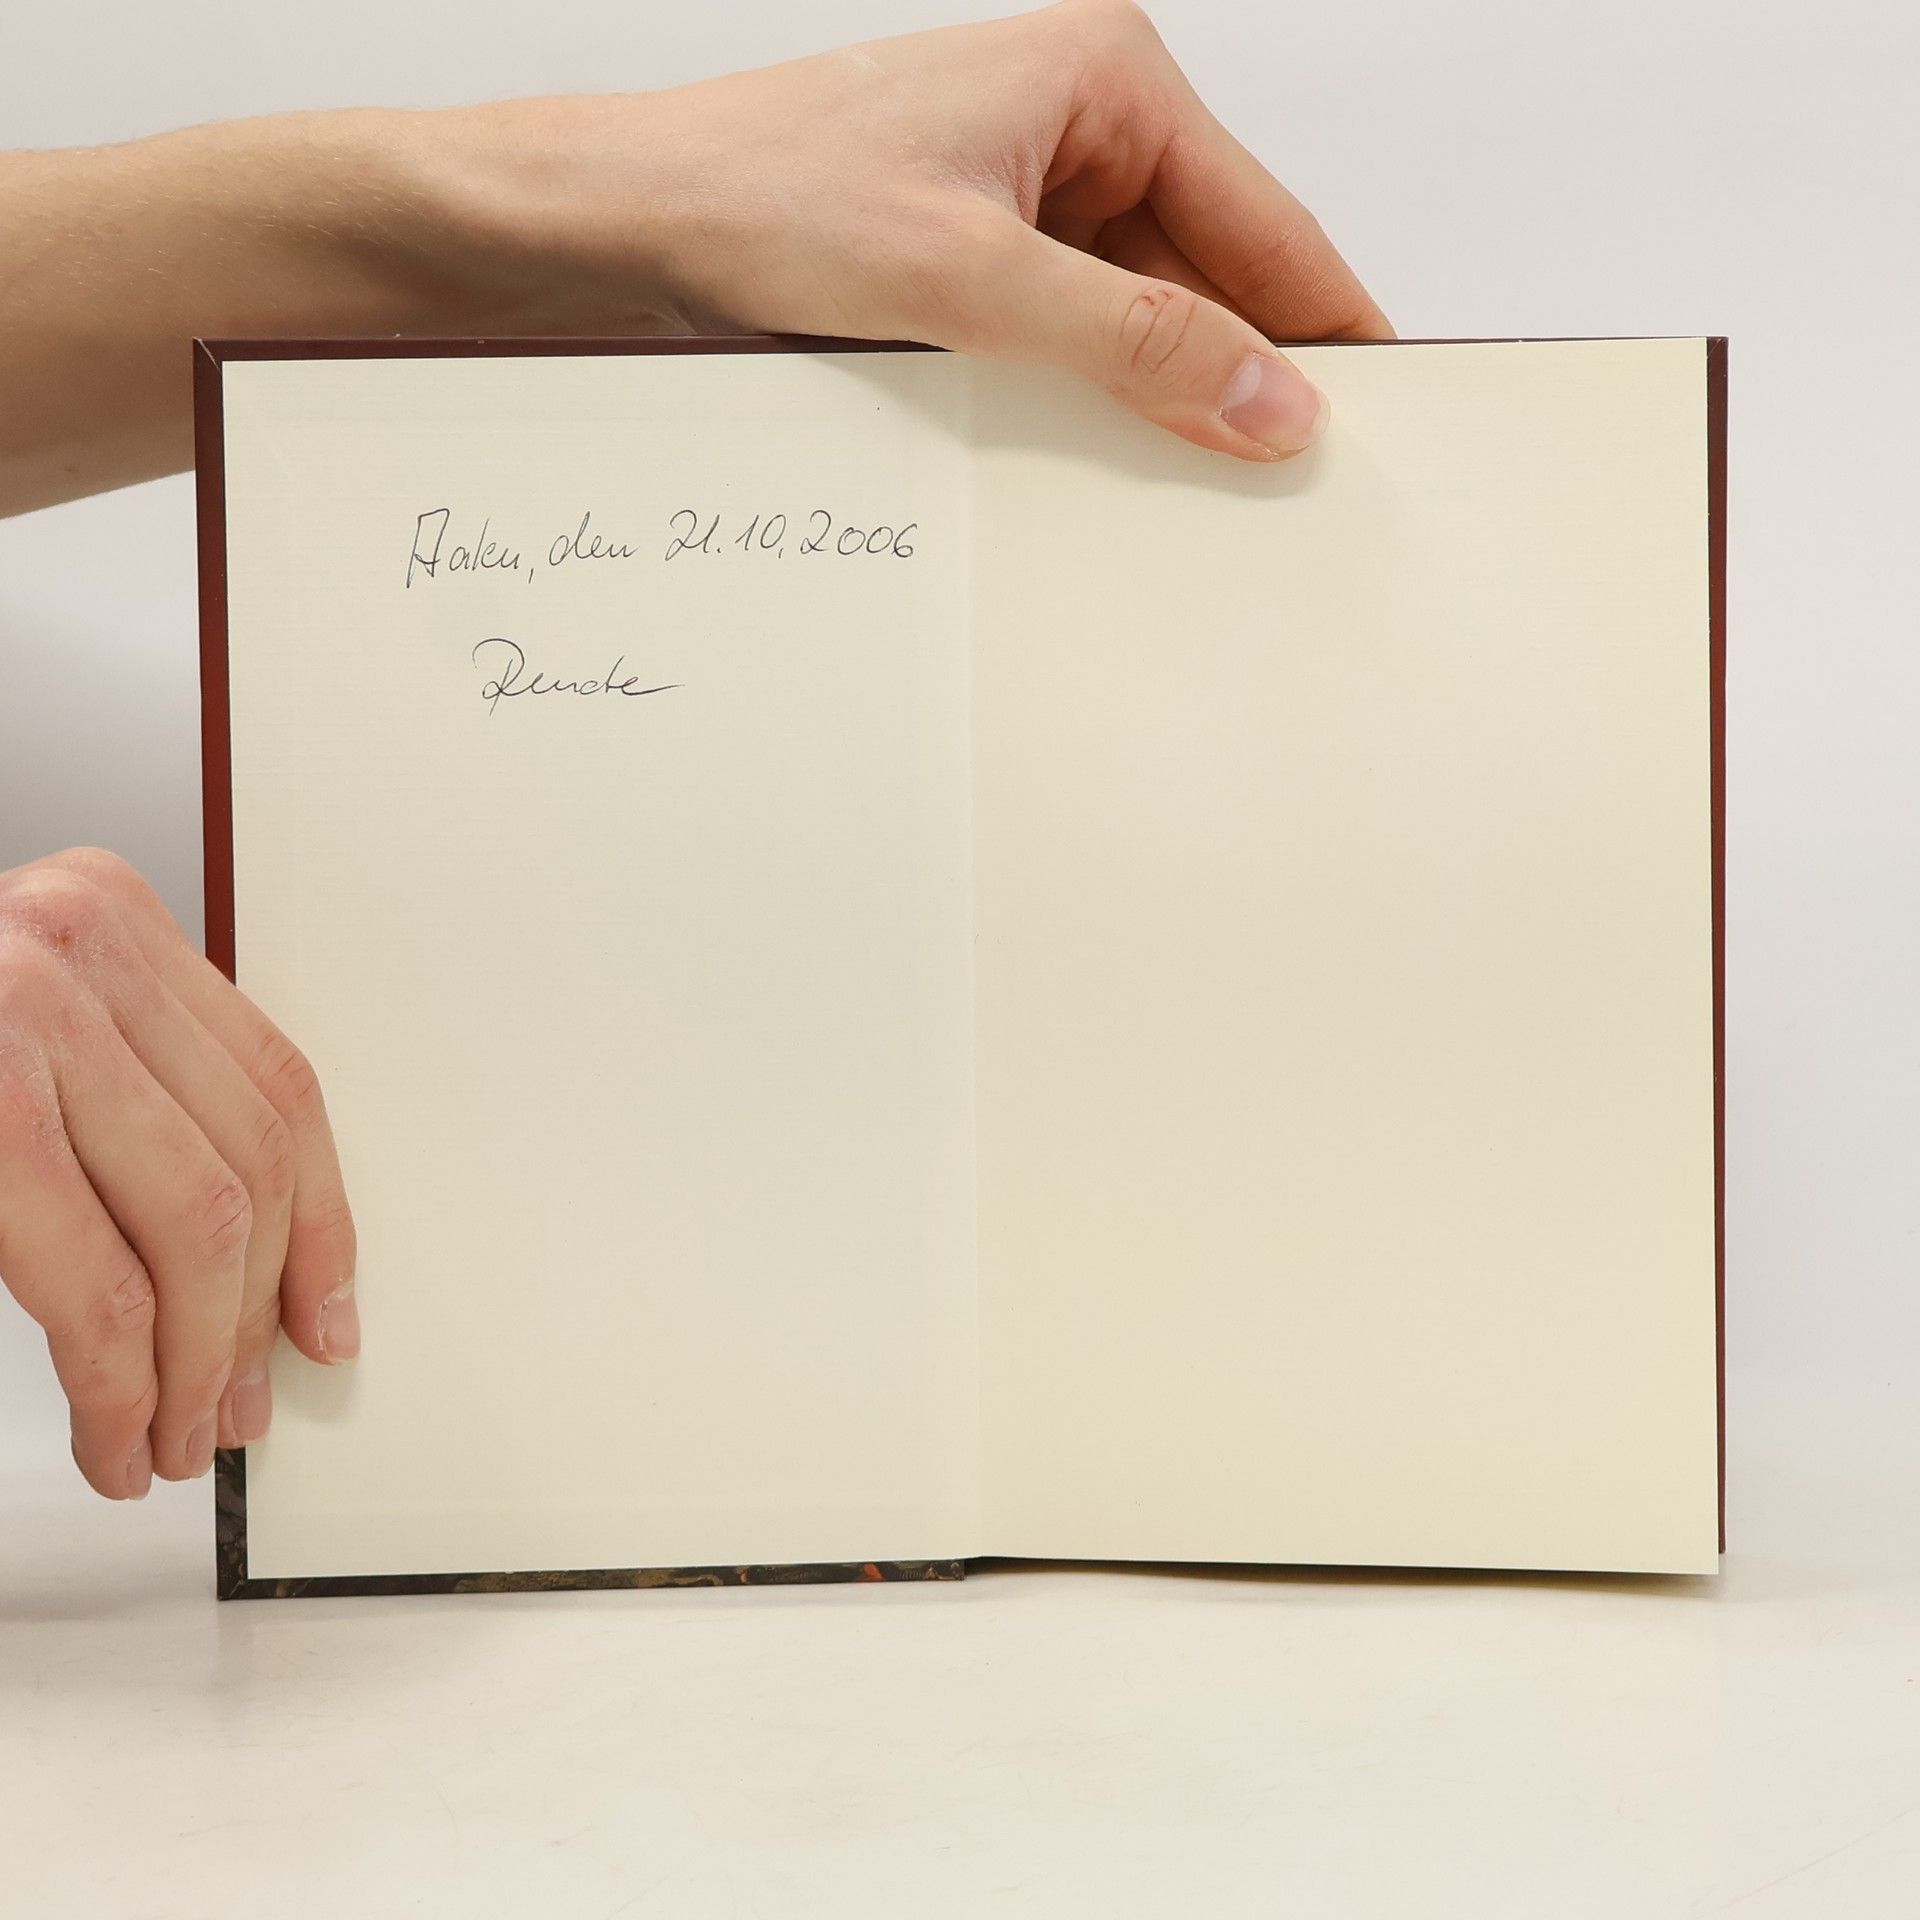 Aaken, den 21.10.2006
Renate